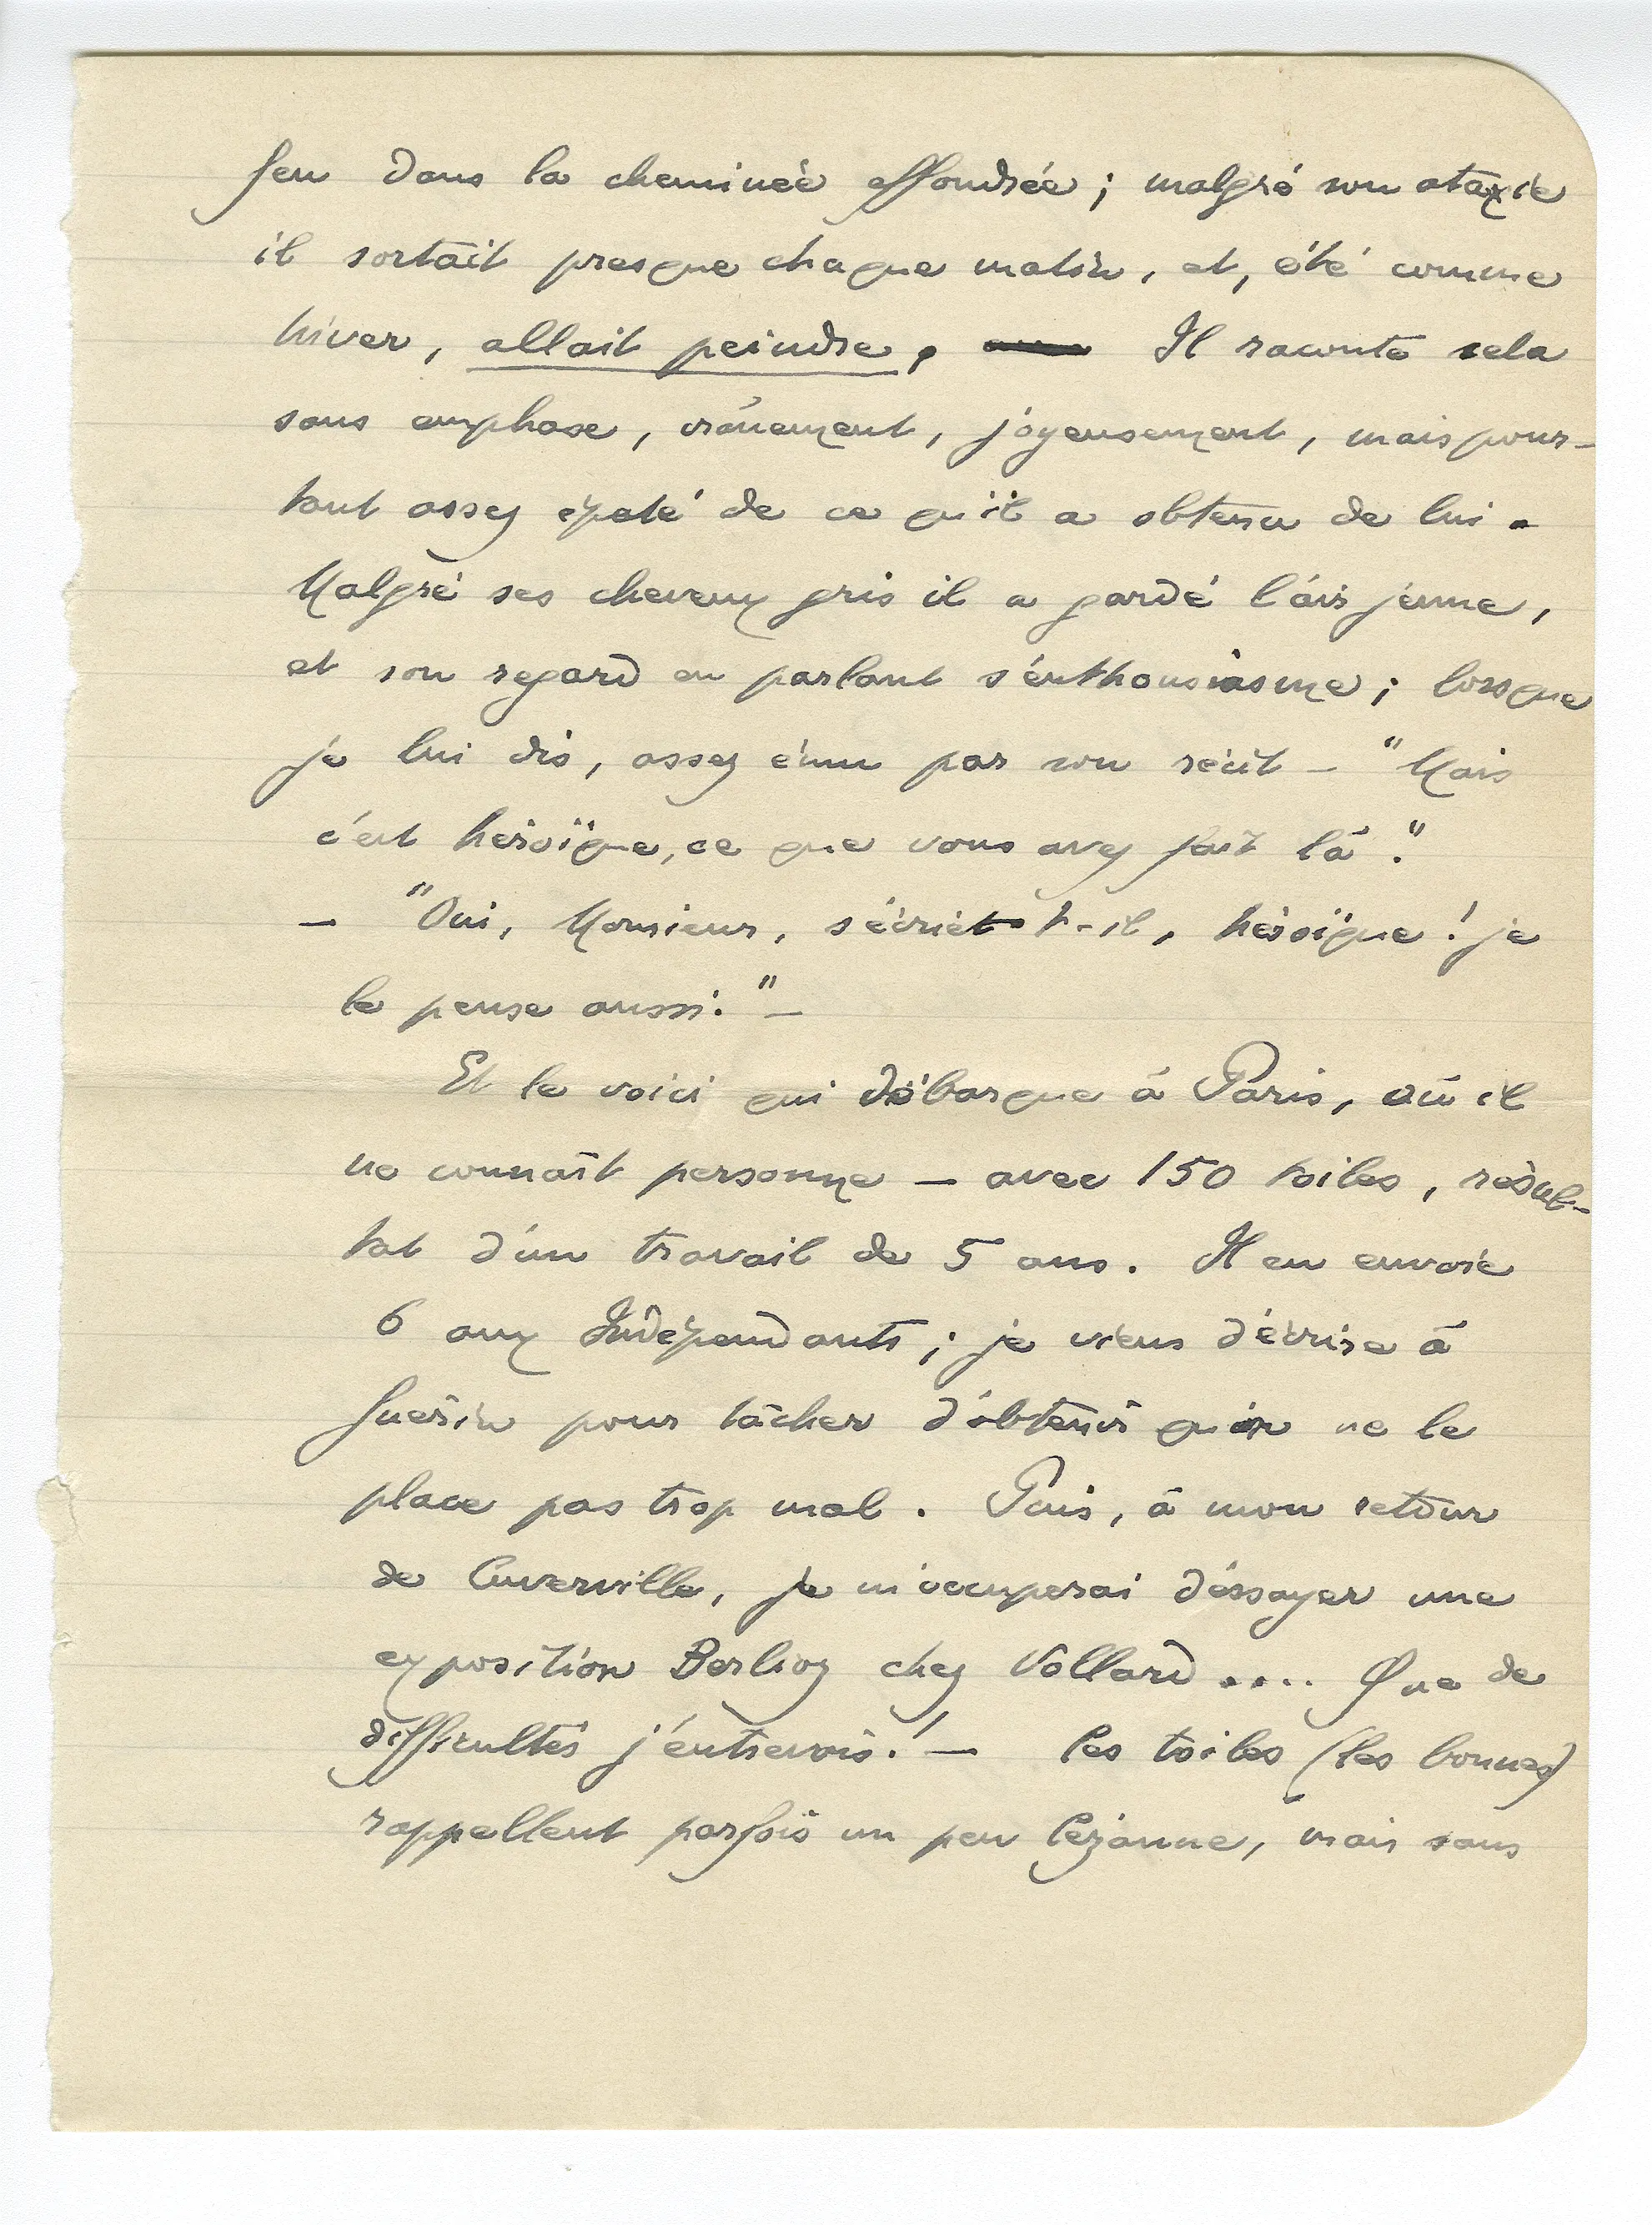 feu dans la cheminée effondrée ; malgré son ataxie
il sortait presque chaque matin, et, été comme
hiver, allait peindre. Il raconte cela
sans emphase, crânement, joyeusement, mais pour-
tant assez épaté de ce qu'il a obtenu de lui.
Malgré ses cheveux gris il a gardé l'air jeune,
et son regard en parlant s'enthousiasme ; lorsque
je lui dis, assez ému par son récit – "Mais
c'est héroïque, ce que vous avez fait là."
– "Oui, Monsieur, s'écrie t-il, héroïque ! je
le pense aussi." –
Et le voici qui débarque à Paris, où il
ne connaît personne – avec 150 toiles, résul-
tat d'un travail de 5 ans. Il en envoie
6 aux Indépendants ; je viens d'écrire à
Guérin pour tâcher d'obtenir qu'on ne le
place pas trop mal. Puis, à mon retour
de Cuverville, je m'occuperai d'essayer une
exposition Berlioz chez Vollard .... Que de
difficultés j'entrevois ! – Ces toiles (les bonnes)
rappellent parfois un peu Cézanne, mais sans